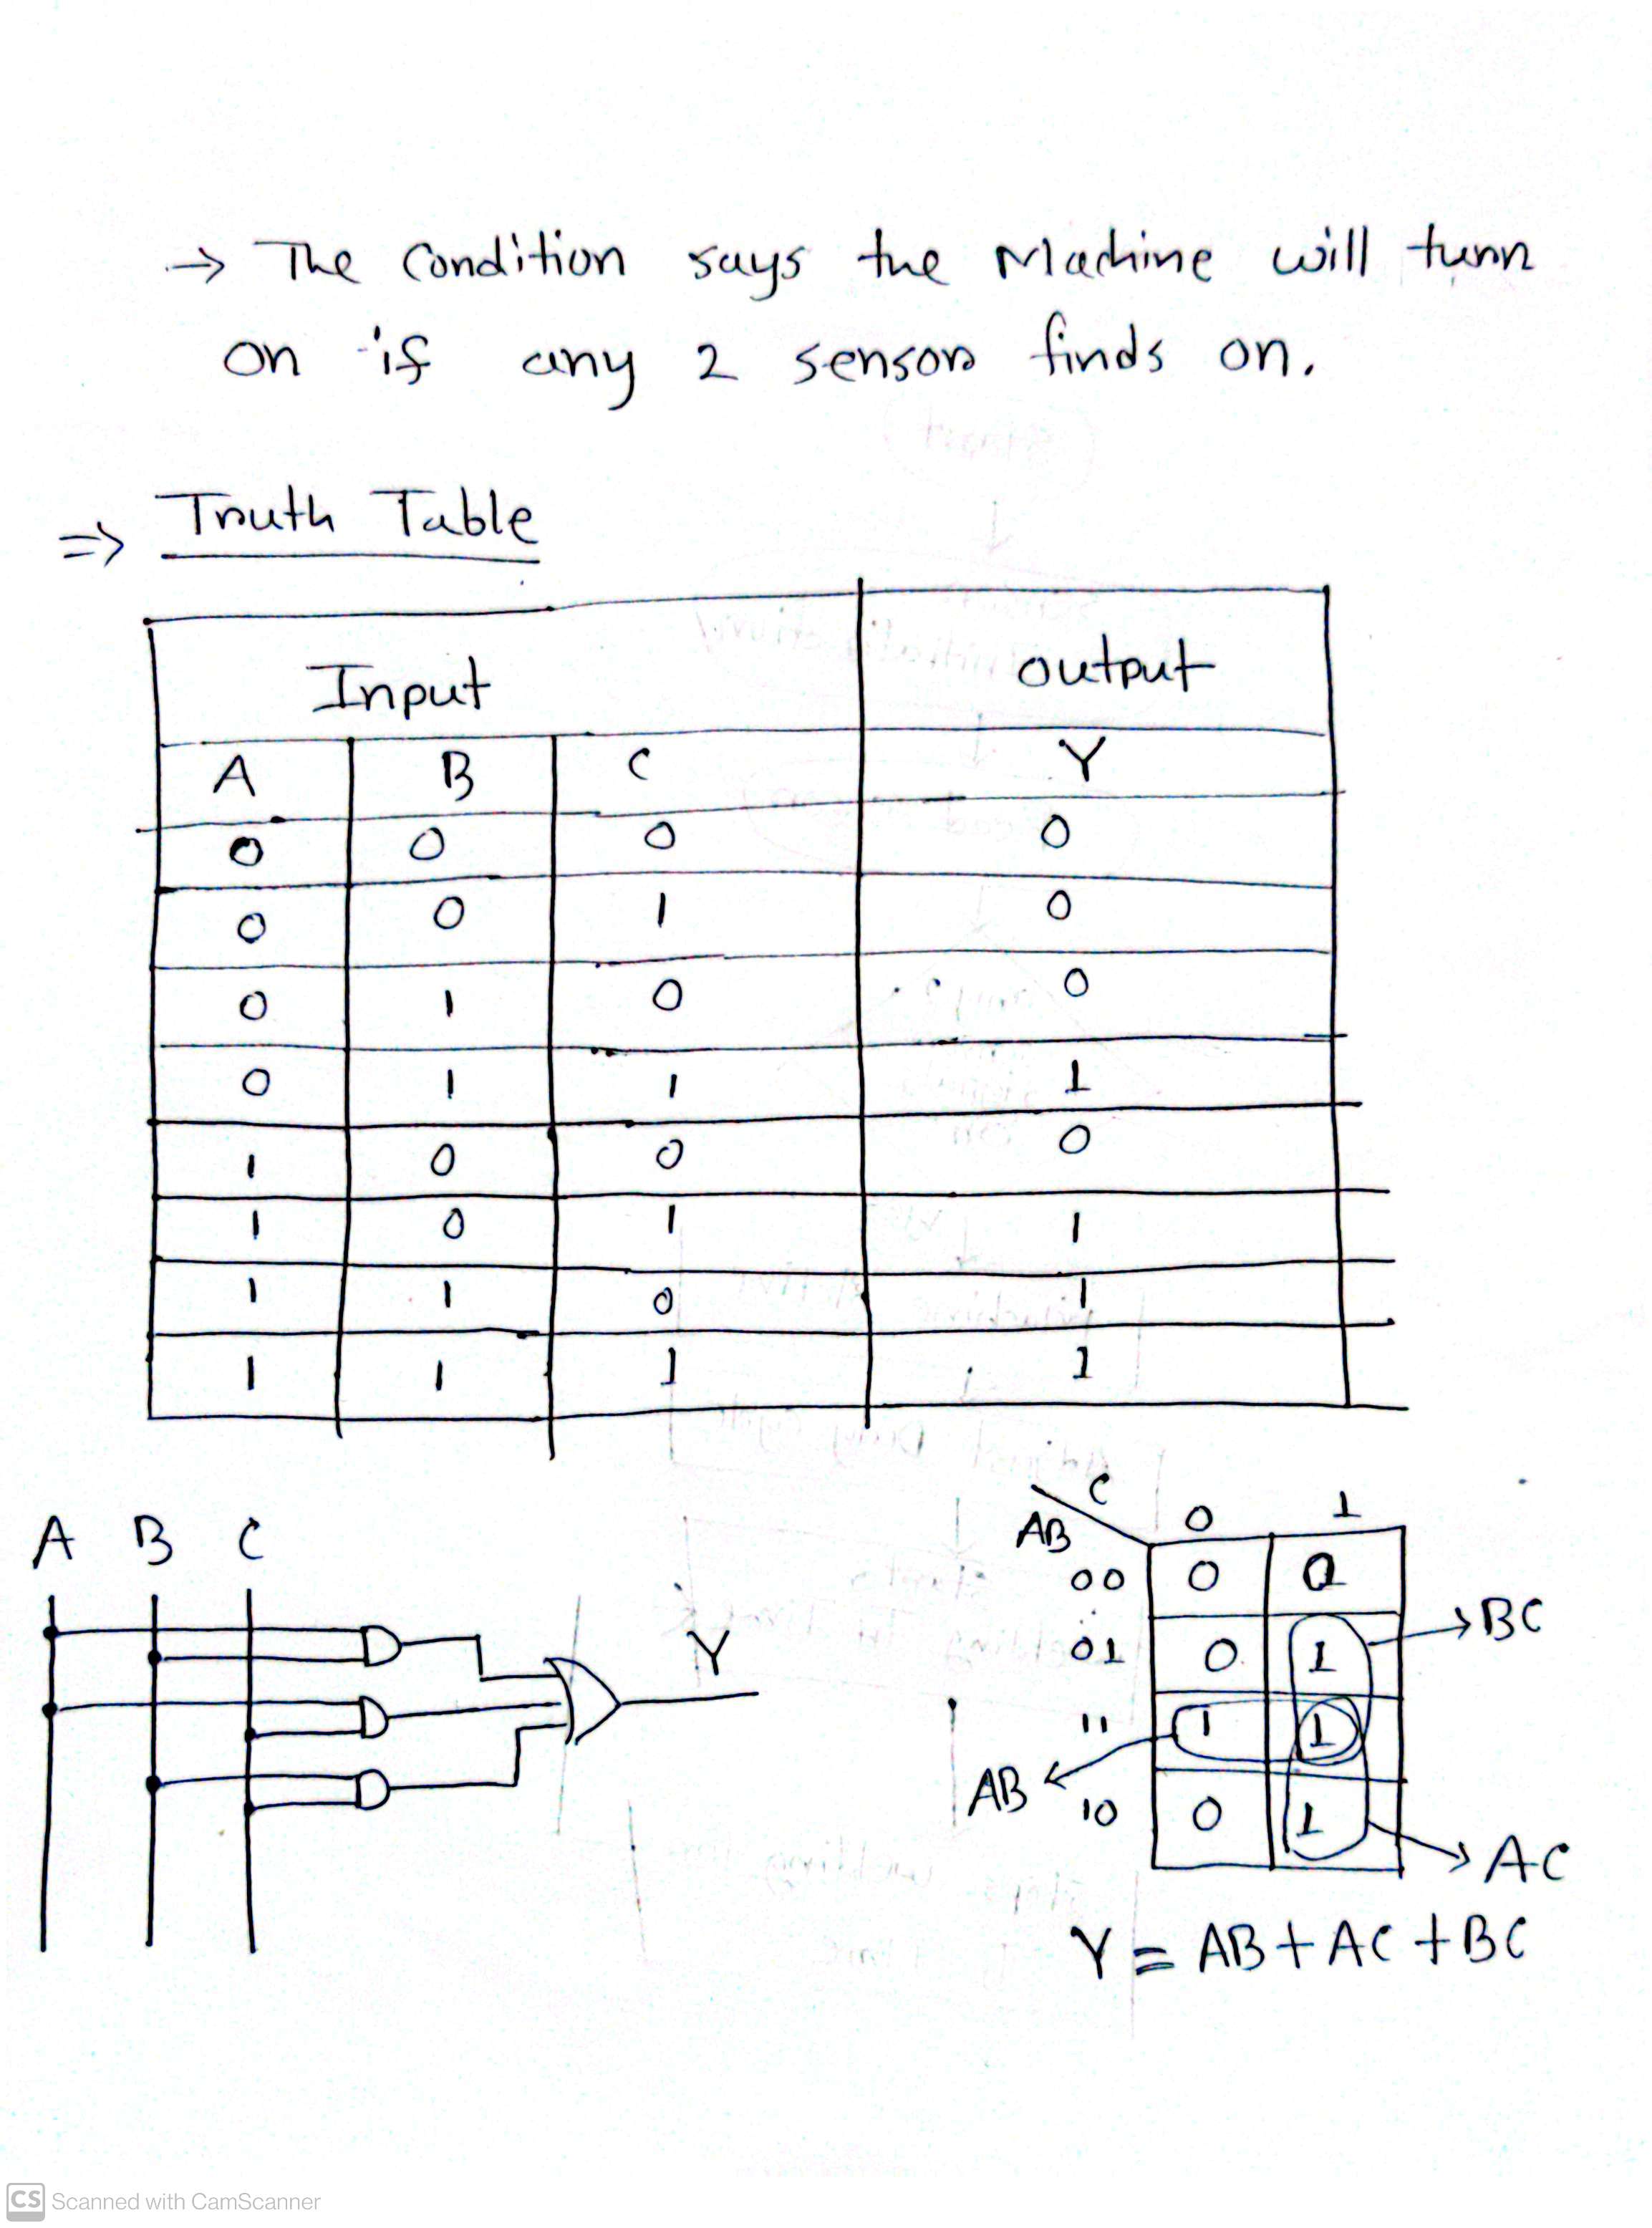 → The Condition says the Machine will turn
on if any 2 sensors finds on.
⇒ Truth Table
Input Output
A B C Y
0 0 0 0
0 0 1 0
0 1 0 0
0 1 1 1
1 0 0 0
1 0 1 1
1 1 0 1
1 1 1 1
A B C
Y
C
AB 0 1
00 0 0
01 0 1
11 1 1
10 0 1
BC
AB
AC
Y = AB + AC + BC
CS Scanned with CamScanner